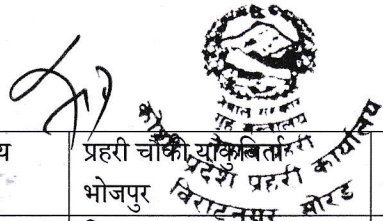 नेपाल सरकार
गृह मन्त्रालय
कोशी प्रदेश प्रहरी कार्यालय
विराटनगर मोरङ
य
प्रहरी चौकी
भोजपुर